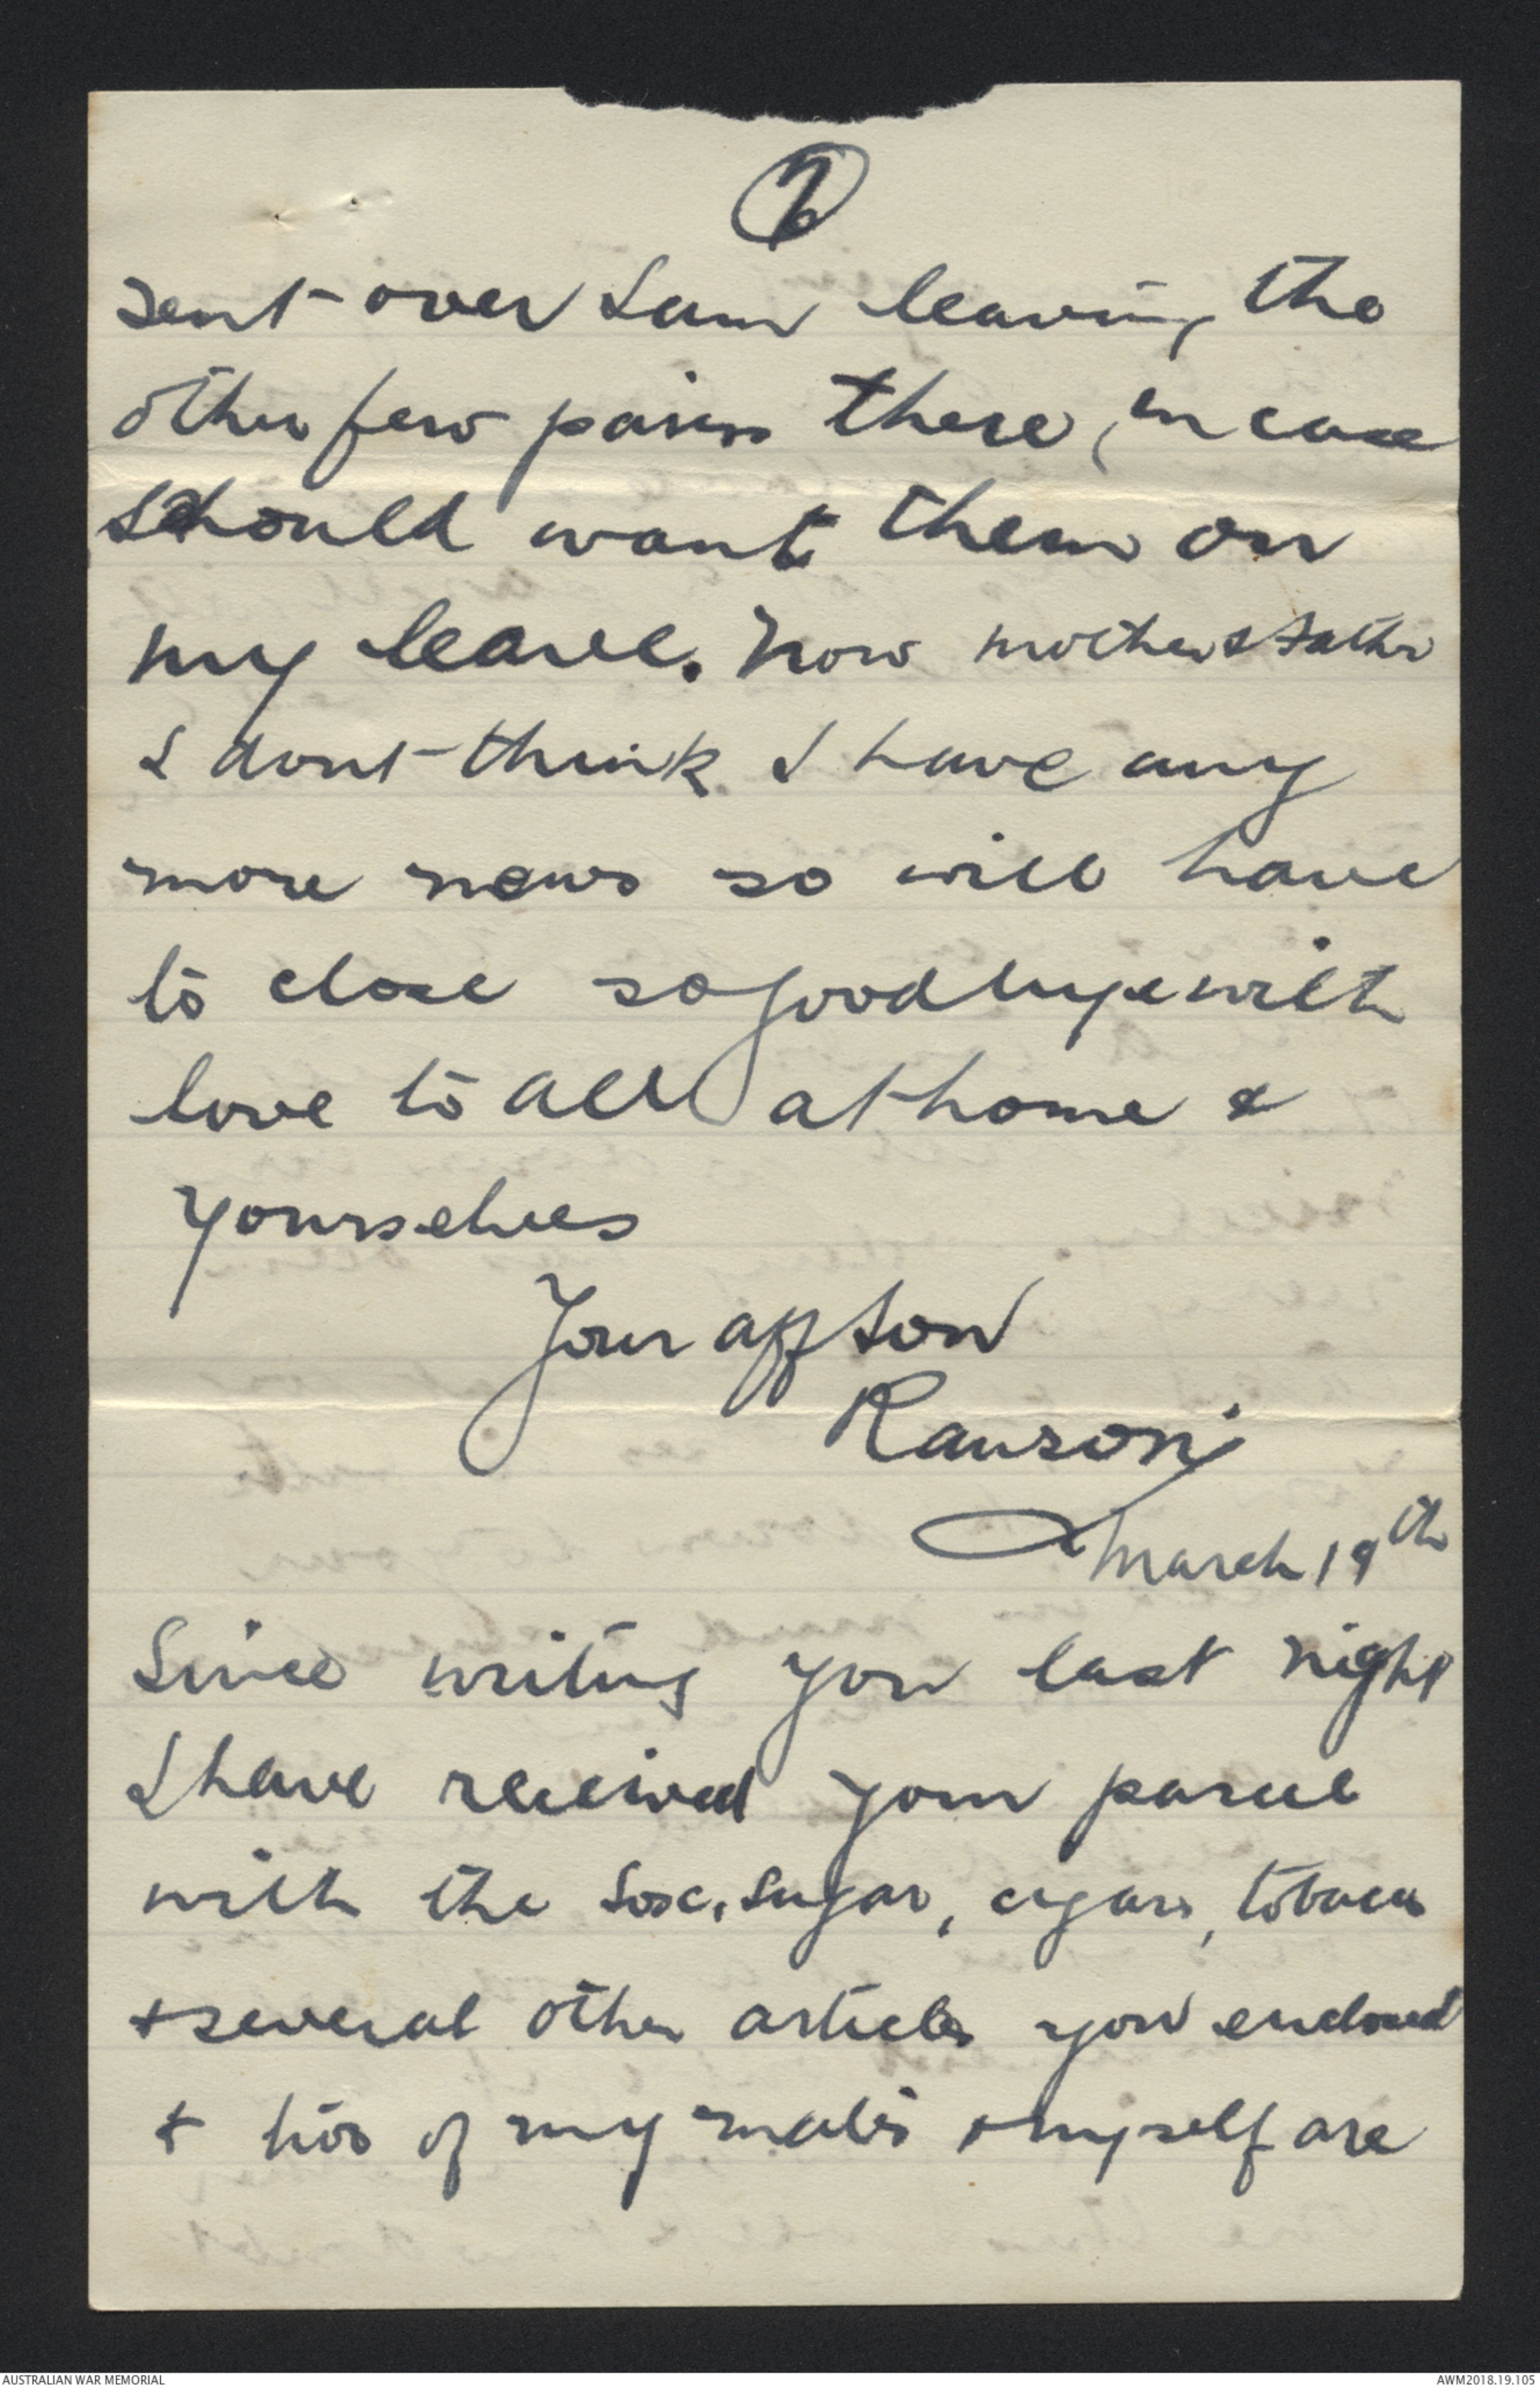 7
sent over & am leaving the
other few pairs there, in case
I should want them on
my leave. Now mother & Father
I dont think I have any
more news so will have
to close so good bye with
love to all at home &
yourselves
Your aff son
Rawson
March 19th
Since writing you last night
I have received your parcel
with the Sox, Sugar, cigars, tobacco
& several other articles you enclosed
& two of my mates & myself are
AUSTRALIAN WAR MEMORIAL
AWM2018.19.105